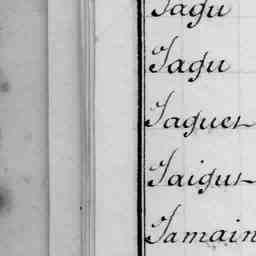 Jagu
Jagu
Jaguet
Jaigut
Jamain